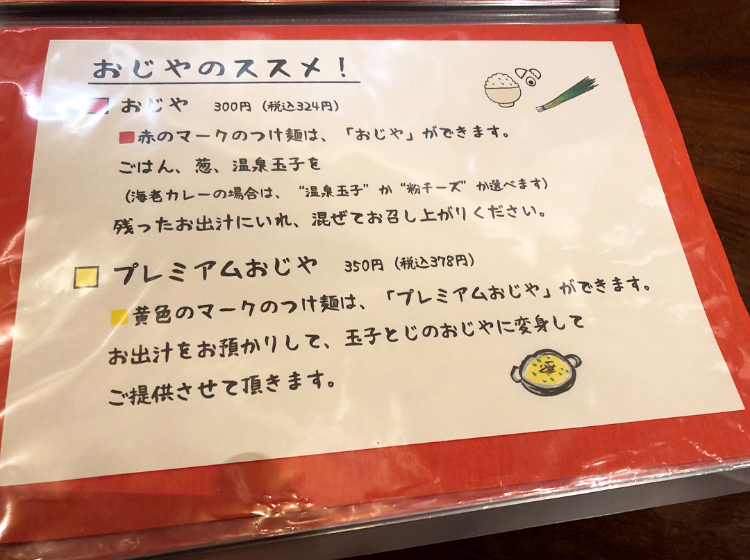 おじやのススメ！
おじや 300円（税込324円）
赤のマークのつけ麺は、「おじや」ができます。
ごはん、葱、温泉玉子を
（海老カレーの場合は、“温泉玉子”か“粉チーズ”か選べます）
残ったお出汁にいれ、混ぜてお召し上がりください。
プレミアムおじや 350円（税込378円）
黄色のマークのつけ麺は、「プレミアムおじや」ができます。
お出汁をお預かりして、玉子とじのおじやに変身して
ご提供させて頂きます。